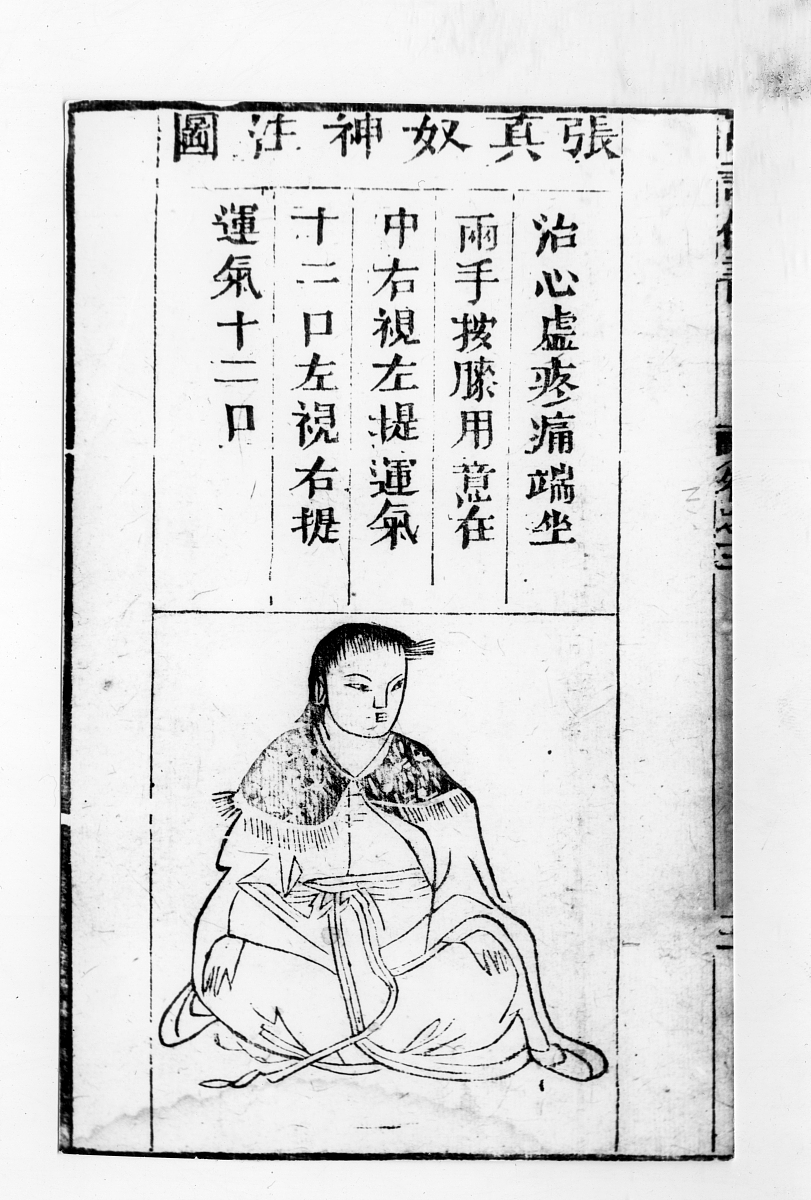 張真奴神注圖
治心虛疼痛端坐
兩手按膝用意在
中右視左提運氣
十二口左視右提
運氣十二口